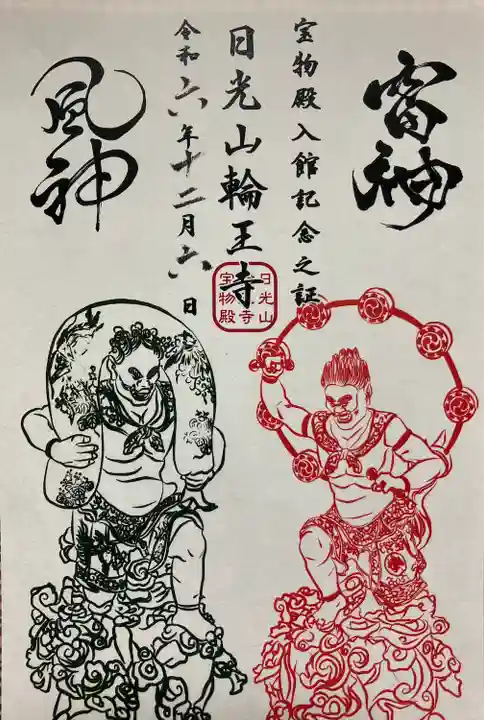 雷神
宝物殿入館記念之証
日光山輪王寺
令和六年十二月六日
風神
日光山
宝物殿